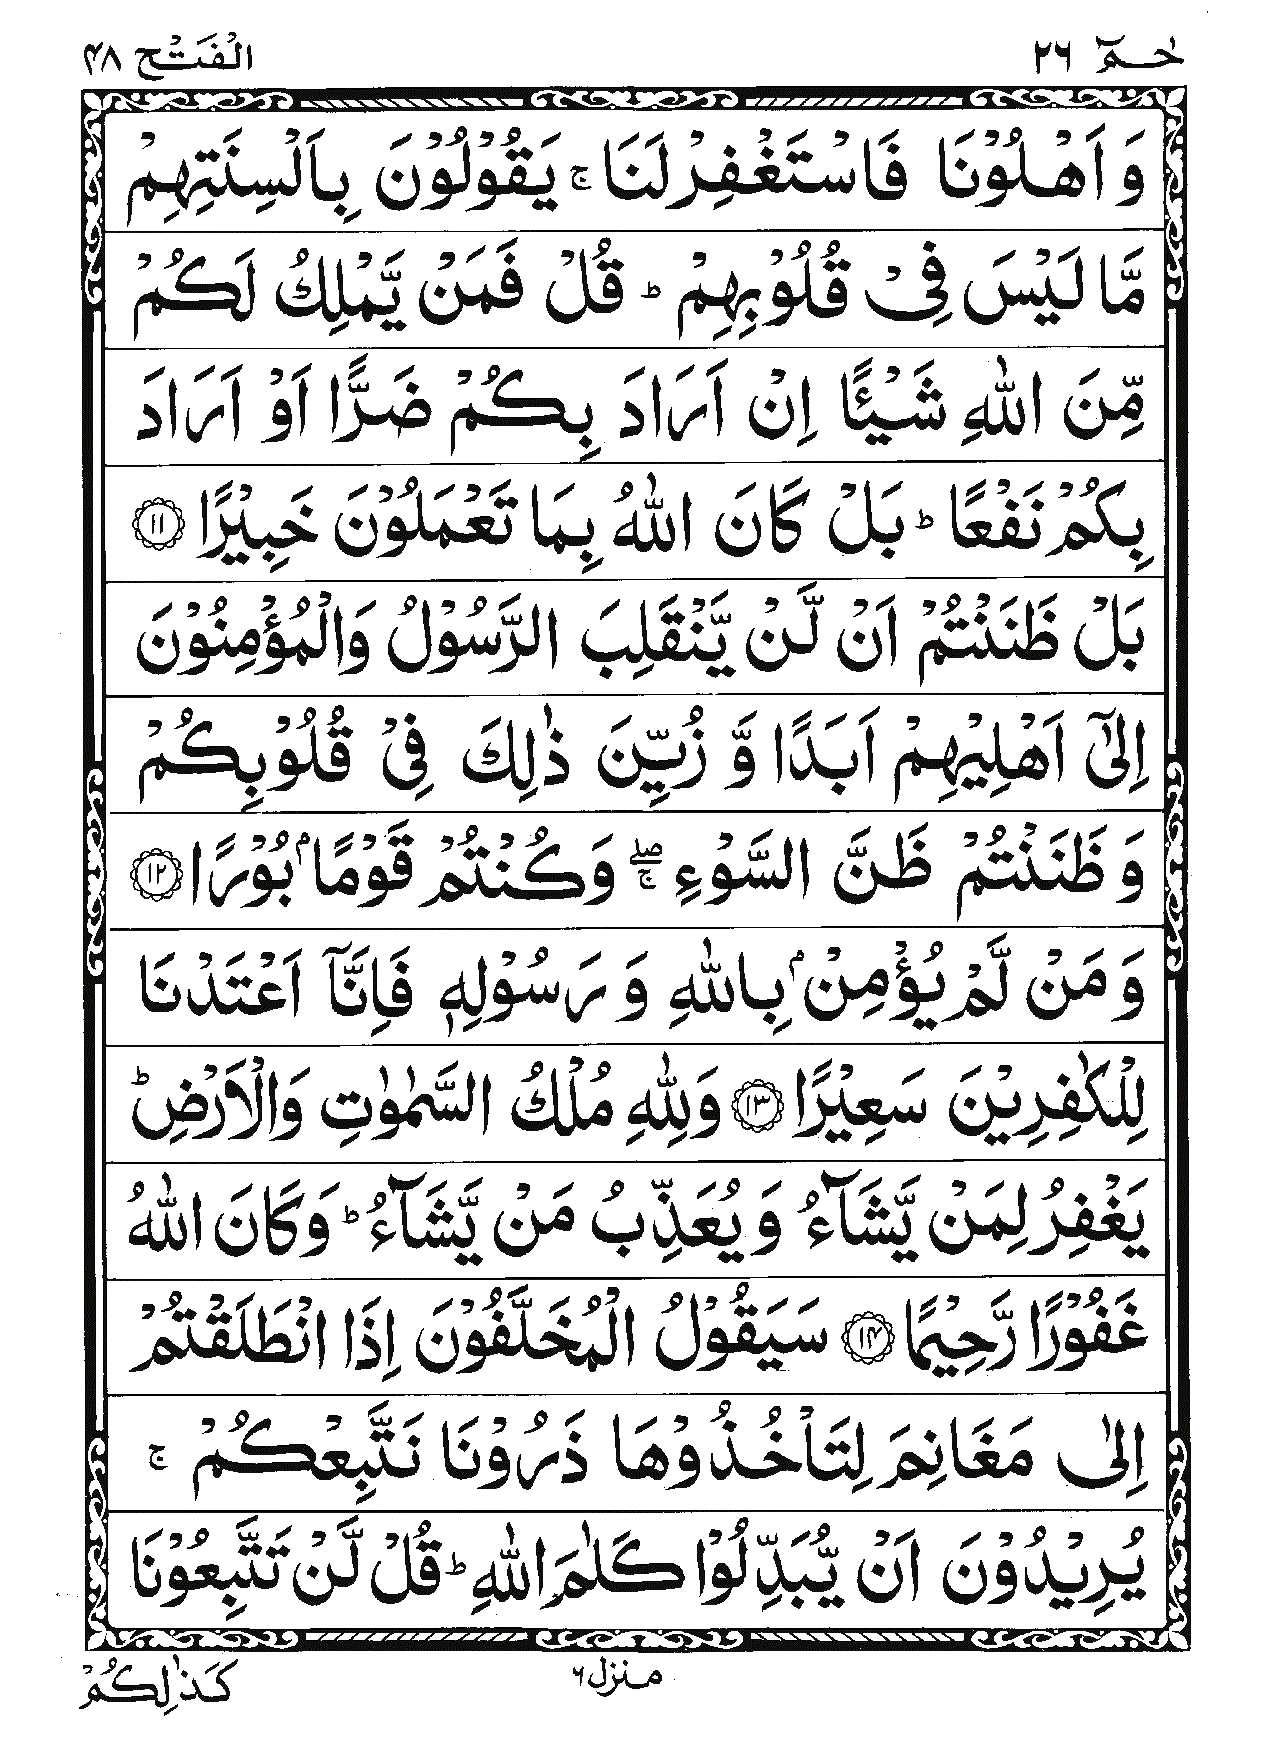 حٰمٓ ٢٦
الْفَتْح ۴٨
وَ اَهْلُوْنَا فَاسْتَغْفِرْ لَنَا ۚ يَقُوْلُوْنَ بِاَلْسِنَتِهِمْ
مَّا لَيْسَ فِيْ قُلُوْبِهِمْ ؕ قُلْ فَمَنْ يَّمْلِكُ لَكُمْ
مِّنَ اللّٰهِ شَيْـًٔا اِنْ اَرَادَ بِكُمْ ضَرًّا اَوْ اَرَادَ
بِكُمْ نَفْعًا ؕ بَلْ كَانَ اللّٰهُ بِمَا تَعْمَلُوْنَ خَبِيْرًا ۝١١
بَلْ ظَنَنْتُمْ اَنْ لَّنْ يَّنْقَلِبَ الرَّسُوْلُ وَالْمُؤْمِنُوْنَ
اِلٰٓى اَهْلِيْهِمْ اَبَدًا وَّ زُيِّنَ ذٰلِكَ فِيْ قُلُوْبِكُمْ
وَ ظَنَنْتُمْ ظَنَّ السَّوْءِ ۖۚ وَ كُنْتُمْ قَوْمًاۢ بُوْرًا ۝١٢
وَ مَنْ لَّمْ يُؤْمِنْۢ بِاللّٰهِ وَ رَسُوْلِهٖ فَاِنَّاۤ اَعْتَدْنَا
لِلْكٰفِرِيْنَ سَعِيْرًا ۝١٣ وَلِلّٰهِ مُلْكُ السَّمٰوٰتِ وَالْاَرْضِ ؕ
يَغْفِرُ لِمَنْ يَّشَآءُ وَ يُعَذِّبُ مَنْ يَّشَآءُ ؕ وَكَانَ اللّٰهُ
غَفُوْرًا رَّحِيْمًا ۝١۴ سَيَقُوْلُ الْمُخَلَّفُوْنَ اِذَا انْطَلَقْتُمْ
اِلٰى مَغَانِمَ لِتَاْخُذُوْهَا ذَرُوْنَا نَتَّبِعْكُمْ ۚ
يُرِيْدُوْنَ اَنْ يُّبَدِّلُوْا كَلٰمَ اللّٰهِ ؕ قُلْ لَّنْ تَتَّبِعُوْنَا
منزل ۶
كَذٰلِكُمْ